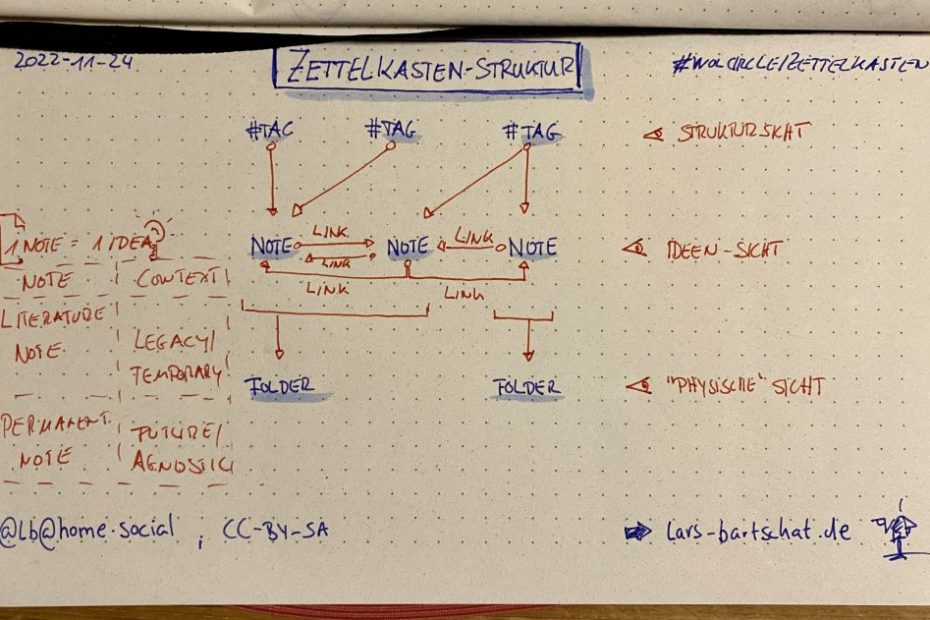 2022-11-24
ZETTELKASTEN-STRUKTUR
#WOLCIRCLE/ZETTELKASTEN
#TAG #TAG #TAG
STRUKTURSICHT
1 NOTE = 1 IDEA
NOTE LINK NOTE LINK NOTE
LINK
IDEEN-SICHT
NOTE CONTEXT
LINK LINK
LITERATURE
NOTE
LEGACY/
TEMPORARY
FOLDER FOLDER
"PHYSISCHE" SICHT
PERMANENT
NOTE
FUTURE/
AGNOSTIC
@lb@home.social, CC-BY-SA
lars-bartschat.de